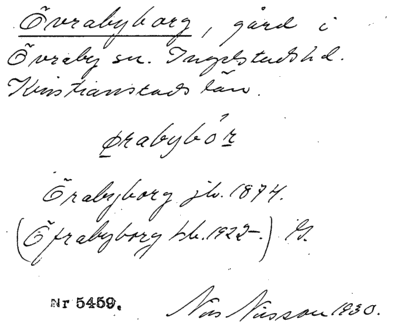 Övrabyborg, gård i
Övraby sn. Ingelstads hd.
Kristianstads län.
ørabybór
Örabyborg jb. 1874.
(Öfrabyborg kb. 1922-.) G.
Nr 5459.
Nils Nilsson 1930.